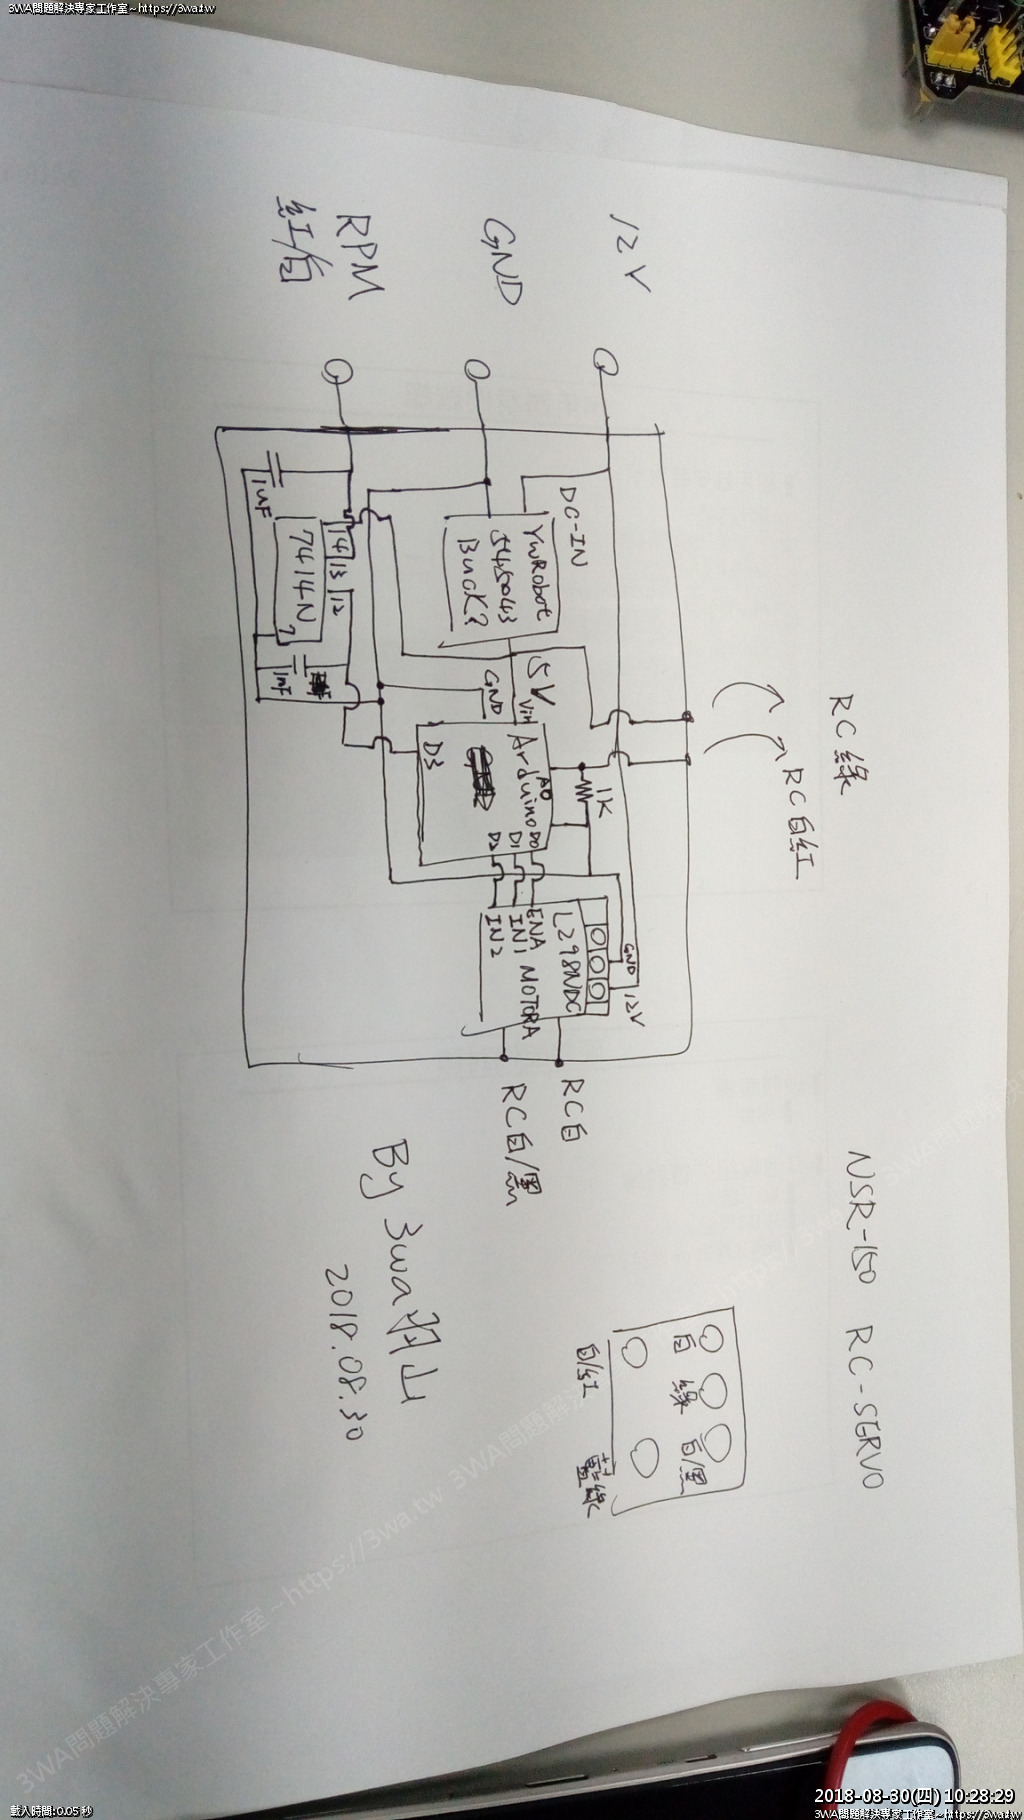 3WA問題解決專家工作室~https://3wa.tw
12V
GND
RPM
紅/白
RC綠
RC白紅
DC-IN
YwRobot
545043
Buck?
5V
GND
Vin
Arduino
A0
D0
D1
D2
D3
1K
1uF
14 13 12
7414N
7
1nF
L298NDC
GND
12V
ENA MOTORA
IN1
IN2
RC白
RC白/黑
NSR-150 RC-SERVO
白 綠 白/黑
白/紅 藍綠
By 3wa羽山
2018.08.30
3WA問題解決專家工作室~https://3wa.tw
載入時間:0.05 秒
2018-08-30(四) 10:28:29
3WA問題解決專家工作室~https://3wa.tw